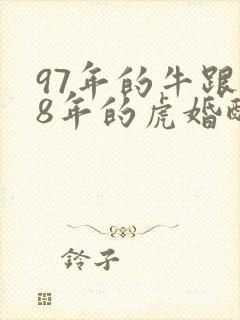 97年的牛跟
8年的虎婚
铃子